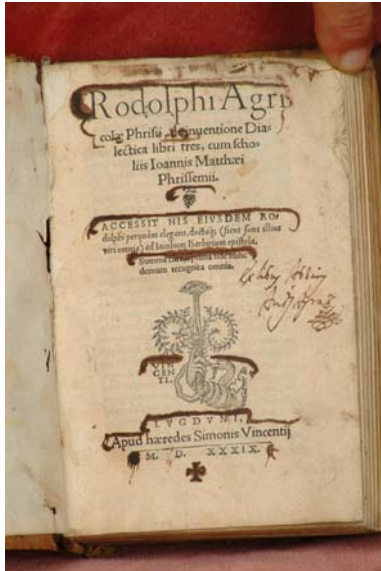 Rodolphi Agri
colæ Phrisii de inuentione Dia-
lectica libri tres, cum scho-
liis Ioannis Matthæi
Phrissemii.
ACCESSIT HIS EIVSDEM RO-
dolphi perquàm elegans, doctaq́; (sicut sunt illius
viri omnia) ad Iacobum Barbirium epistola.
omnia.
VIN
CEN
TI.
LVGDVNI,
Apud hæredes Simonis Vincentij
M. D. XXXIX.